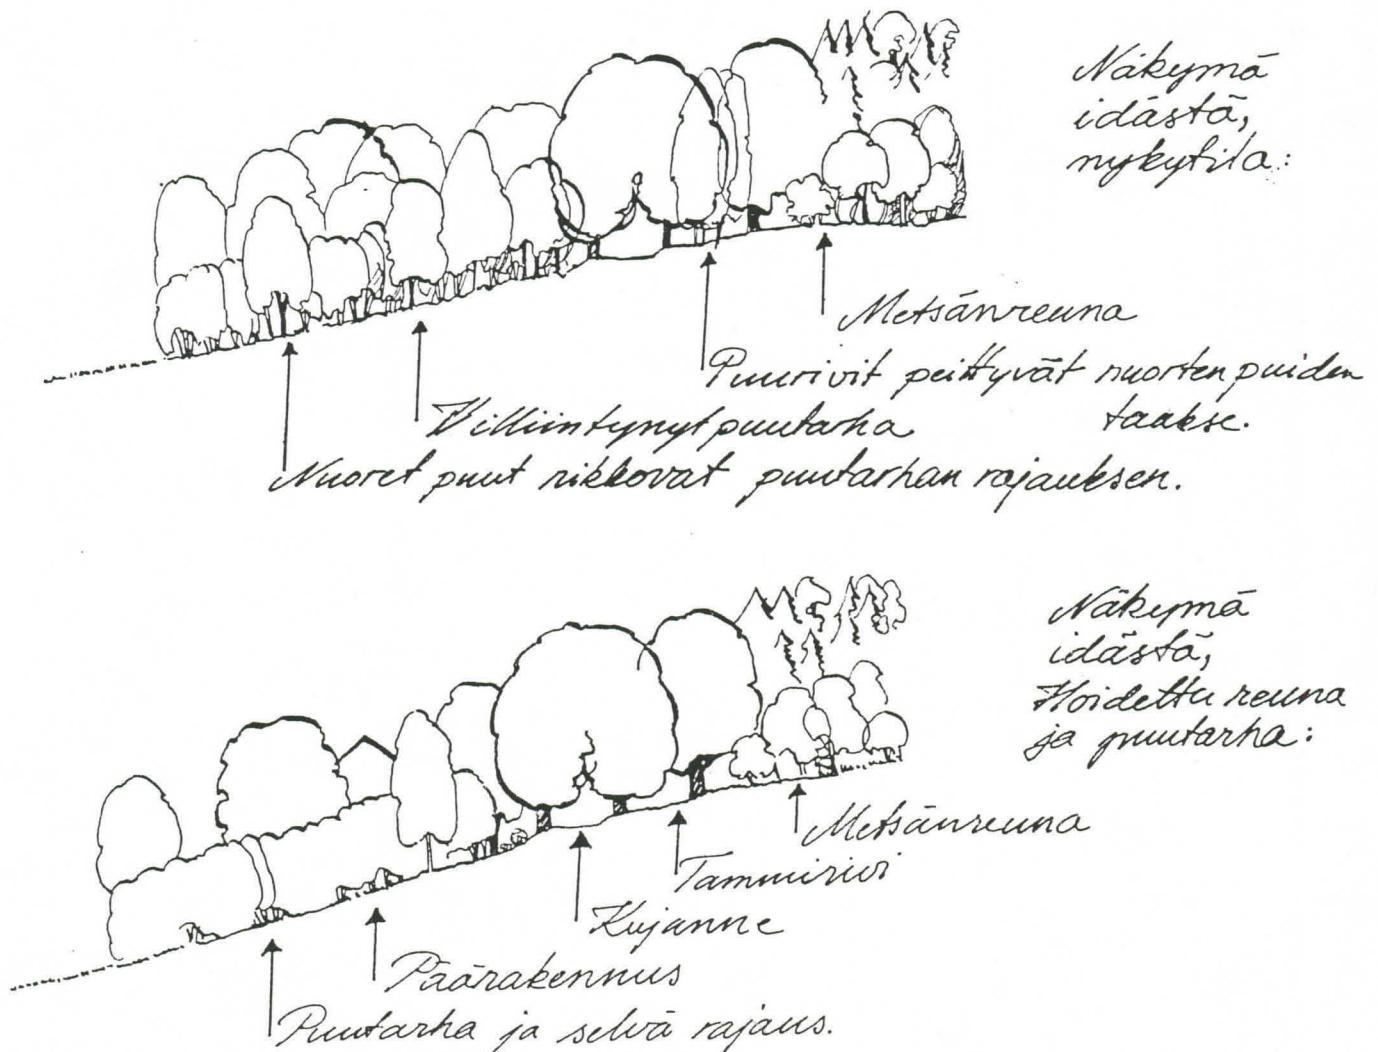 Näkymä
idästä,
nykytila:
Metsänreuna
Puurivit peittyvät nuorten puiden
taakse.
Villiintynyt puutarha
Nuoret puut rikkovat puutarhan rajauksen.
Näkymä
idästä,
Hoidettu reuna
ja puutarha:
Metsänreuna
Tammirivi
Kujanne
Päärakennus
Puutarha ja selvä rajaus.